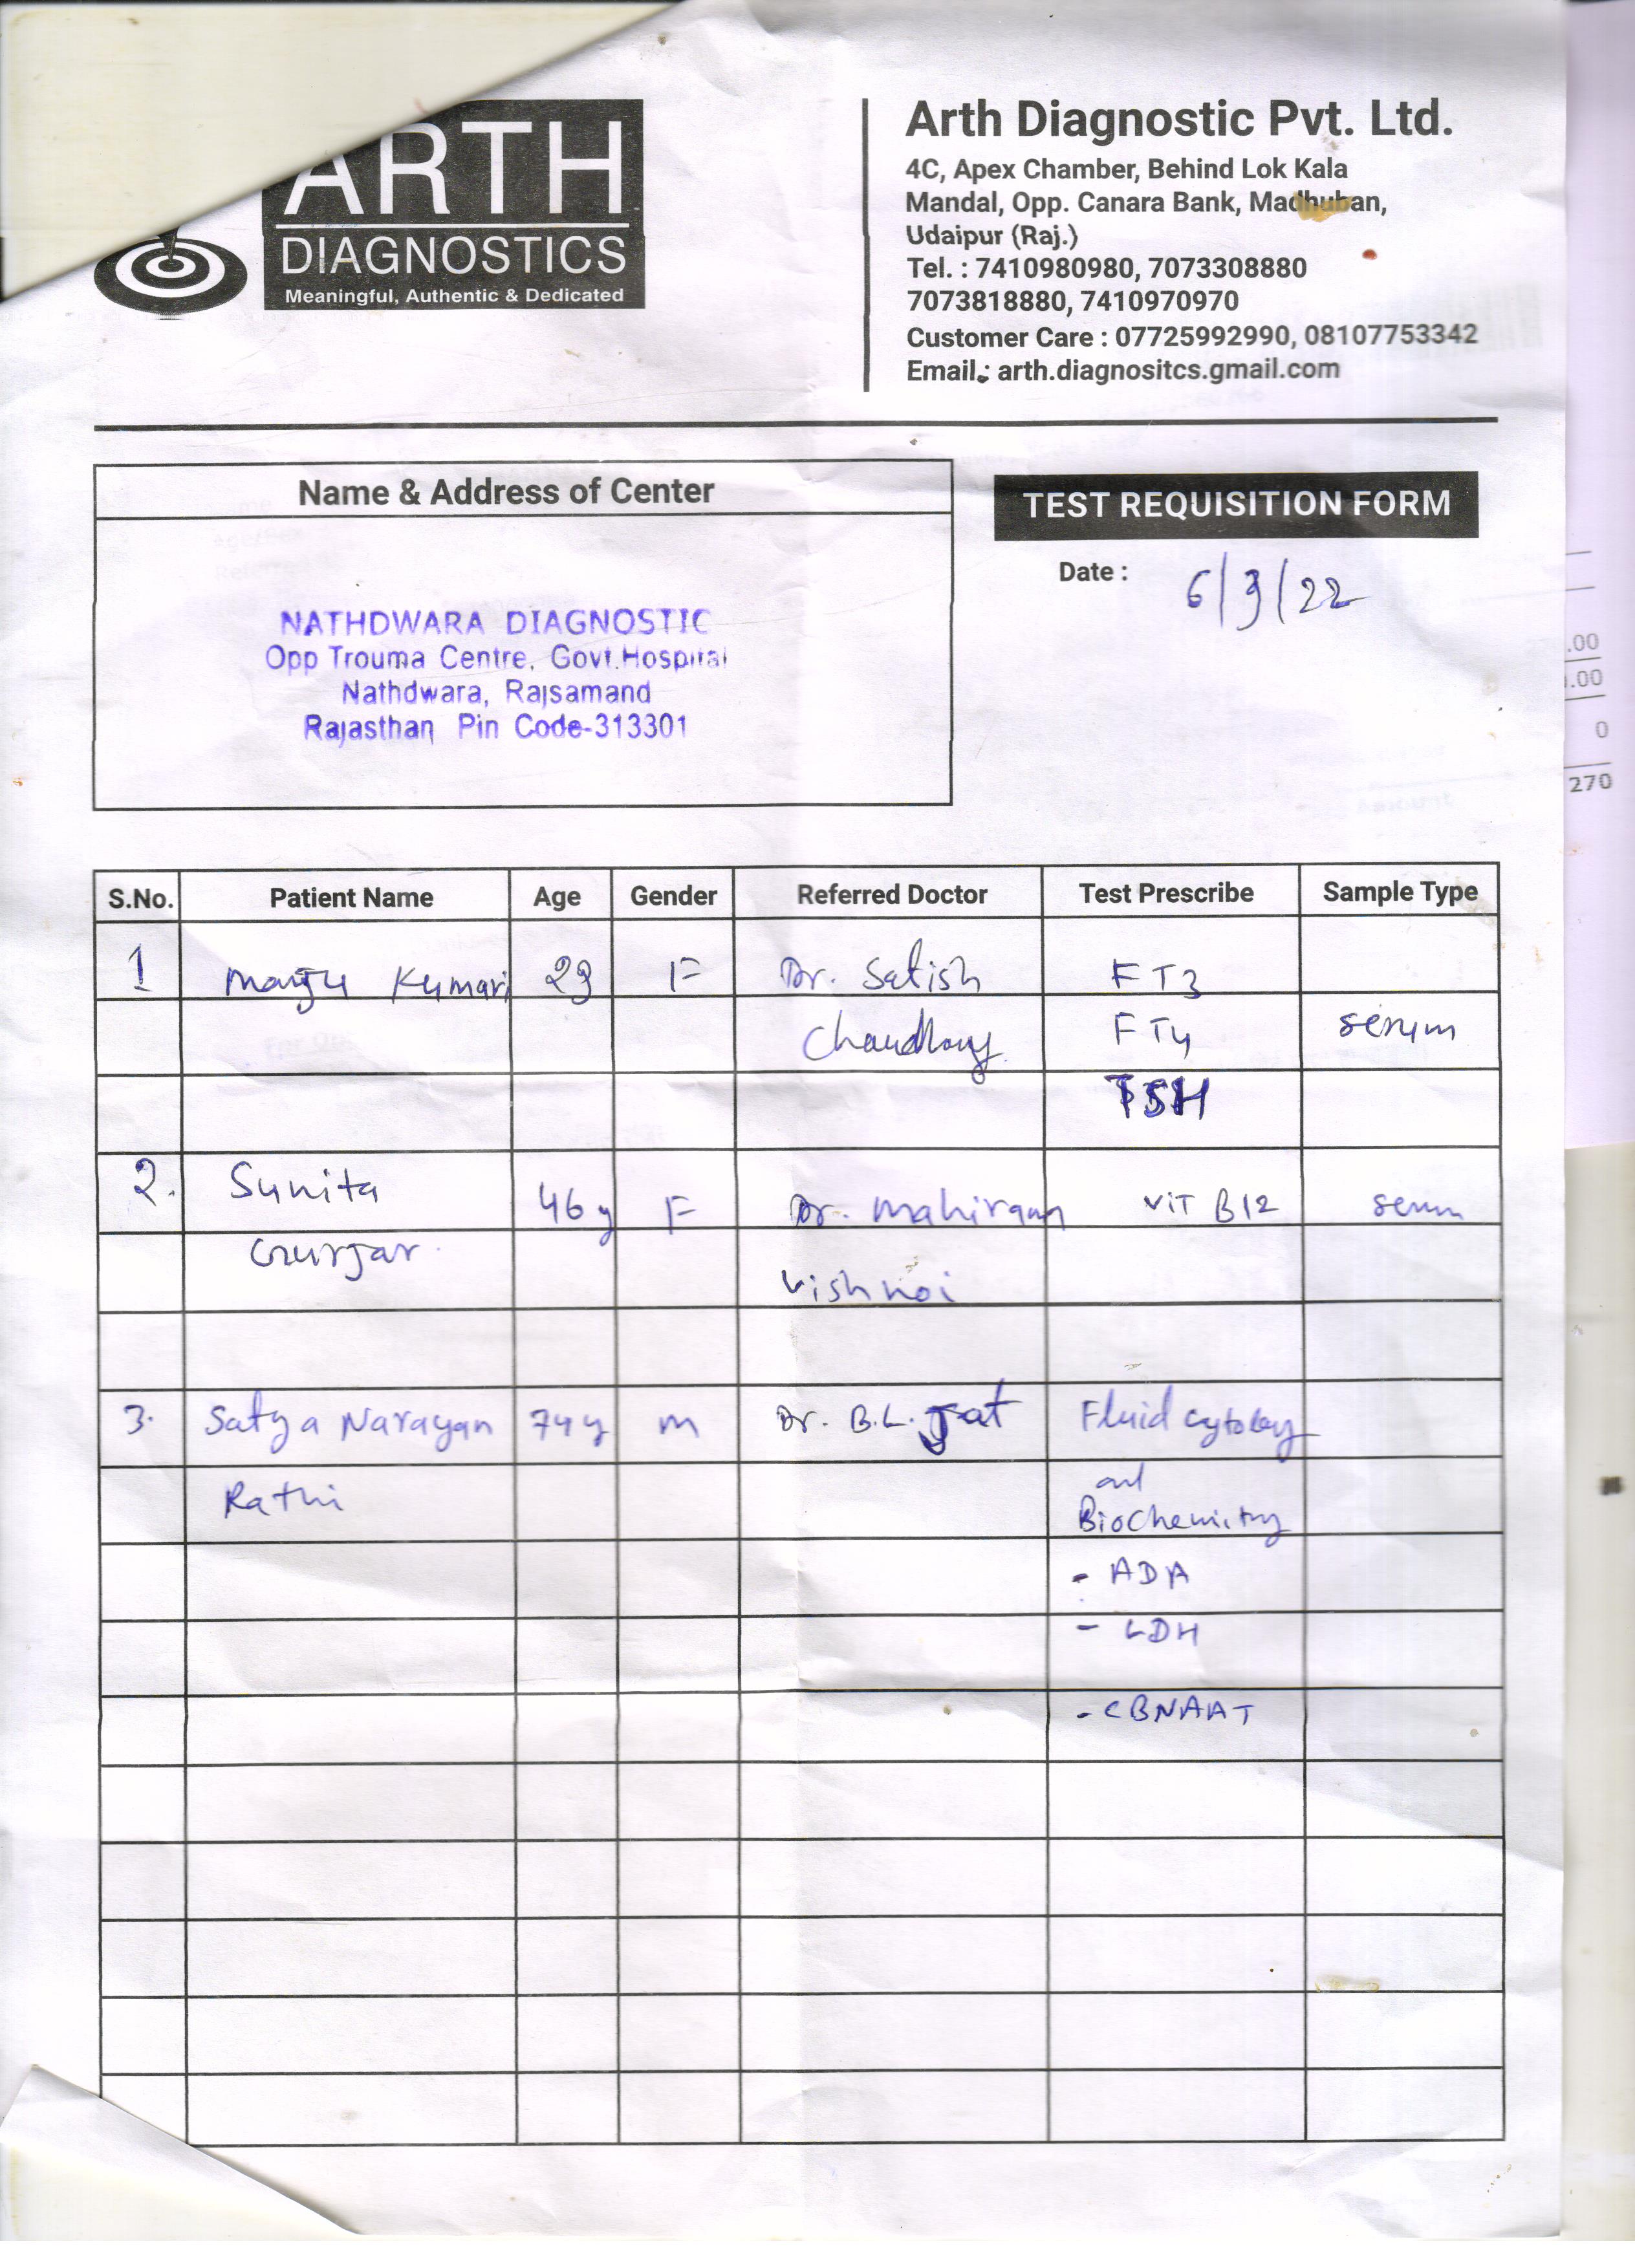 ARTH
DIAGNOSTICS
Meaningful, Authentic & Dedicated
Arth Diagnostic Pvt. Ltd.
4C, Apex Chamber, Behind Lok Kala
Mandal, Opp. Canara Bank, Madhuban,
Udaipur (Raj.)
Tel. : 7410980980, 7073308880
7073818880, 7410970970
Customer Care : 07725992990, 08107753342
Email.: arth.diagnositcs.gmail.com
Name & Address of Center
NATHDWARA DIAGNOSTIC
Opp Trouma Centre, Govt.Hospital
Nathdwara, Rajsamand
Rajasthan Pin Code-313301
TEST REQUISITION FORM
Date : 6/3/22
.00
.00
0
270
S.No. Patient Name Age Gender Referred Doctor Test Prescribe Sample Type
1 Manju Kumari 29 F Dr. Satish FT3
Chaudhary FT4 serum
TSH
2. Sunita 46y F Dr. Mahiram VIT B12 serum
Gurjar Vishnoi
3. Satya Narayan 74y m Dr. B.L. Jat Fluid cytology
Rathi and
Biochemistry
- ADA
- LDH
- CBNAAT